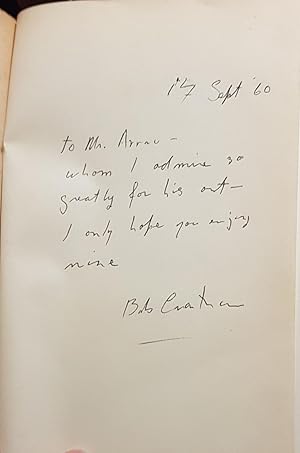 17 Sept '60
to Mr. Arrau –
whom I admire so
greatly for his art –
I only hope you enjoy
mine
Bob